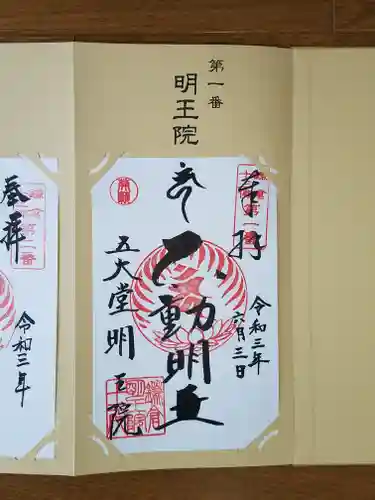 第一番
明王院
奉拝
第一番
令和三年
六月三日
不動明王
五大堂明王院
奉拝
第二番
令和三年